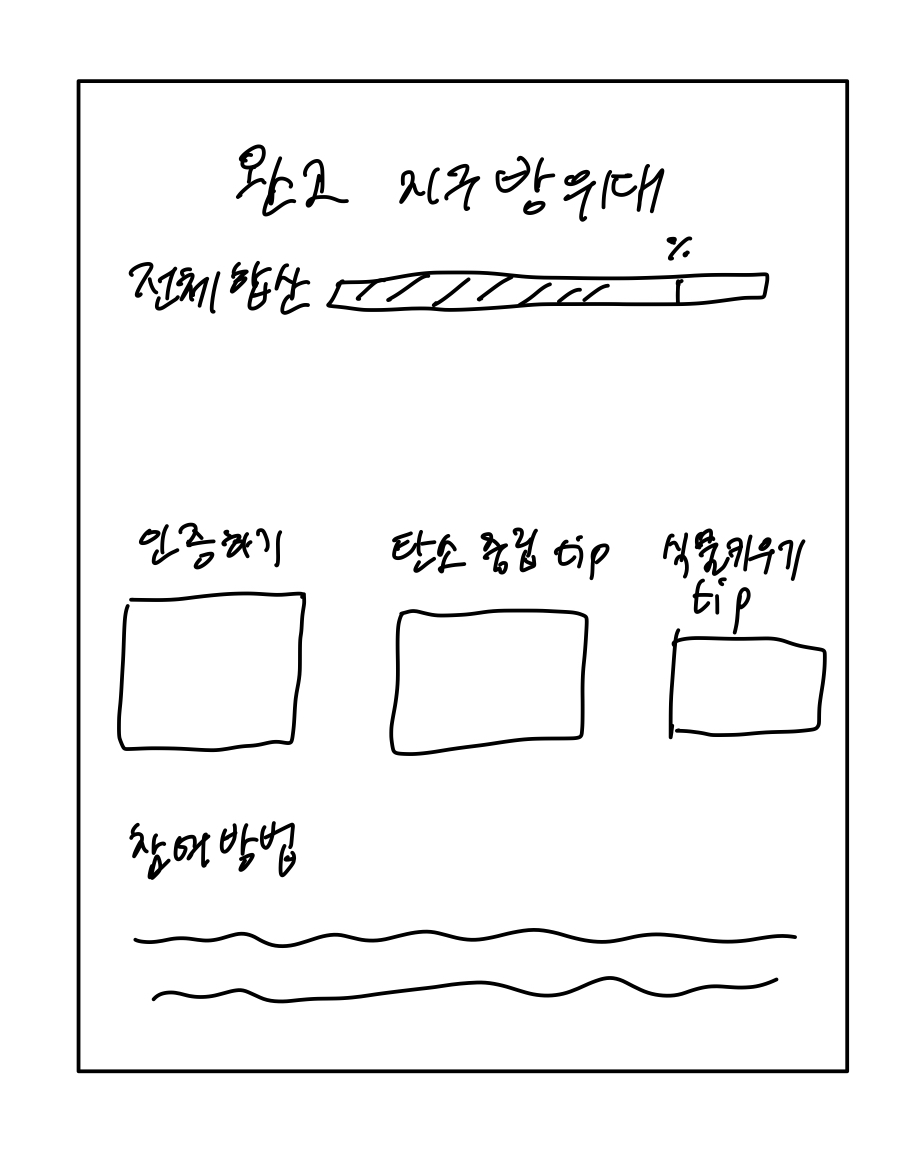 완고 지구방위대
%
전체 합산
인증하기
탄소 중립 tip
식물키우기
tip
참여방법